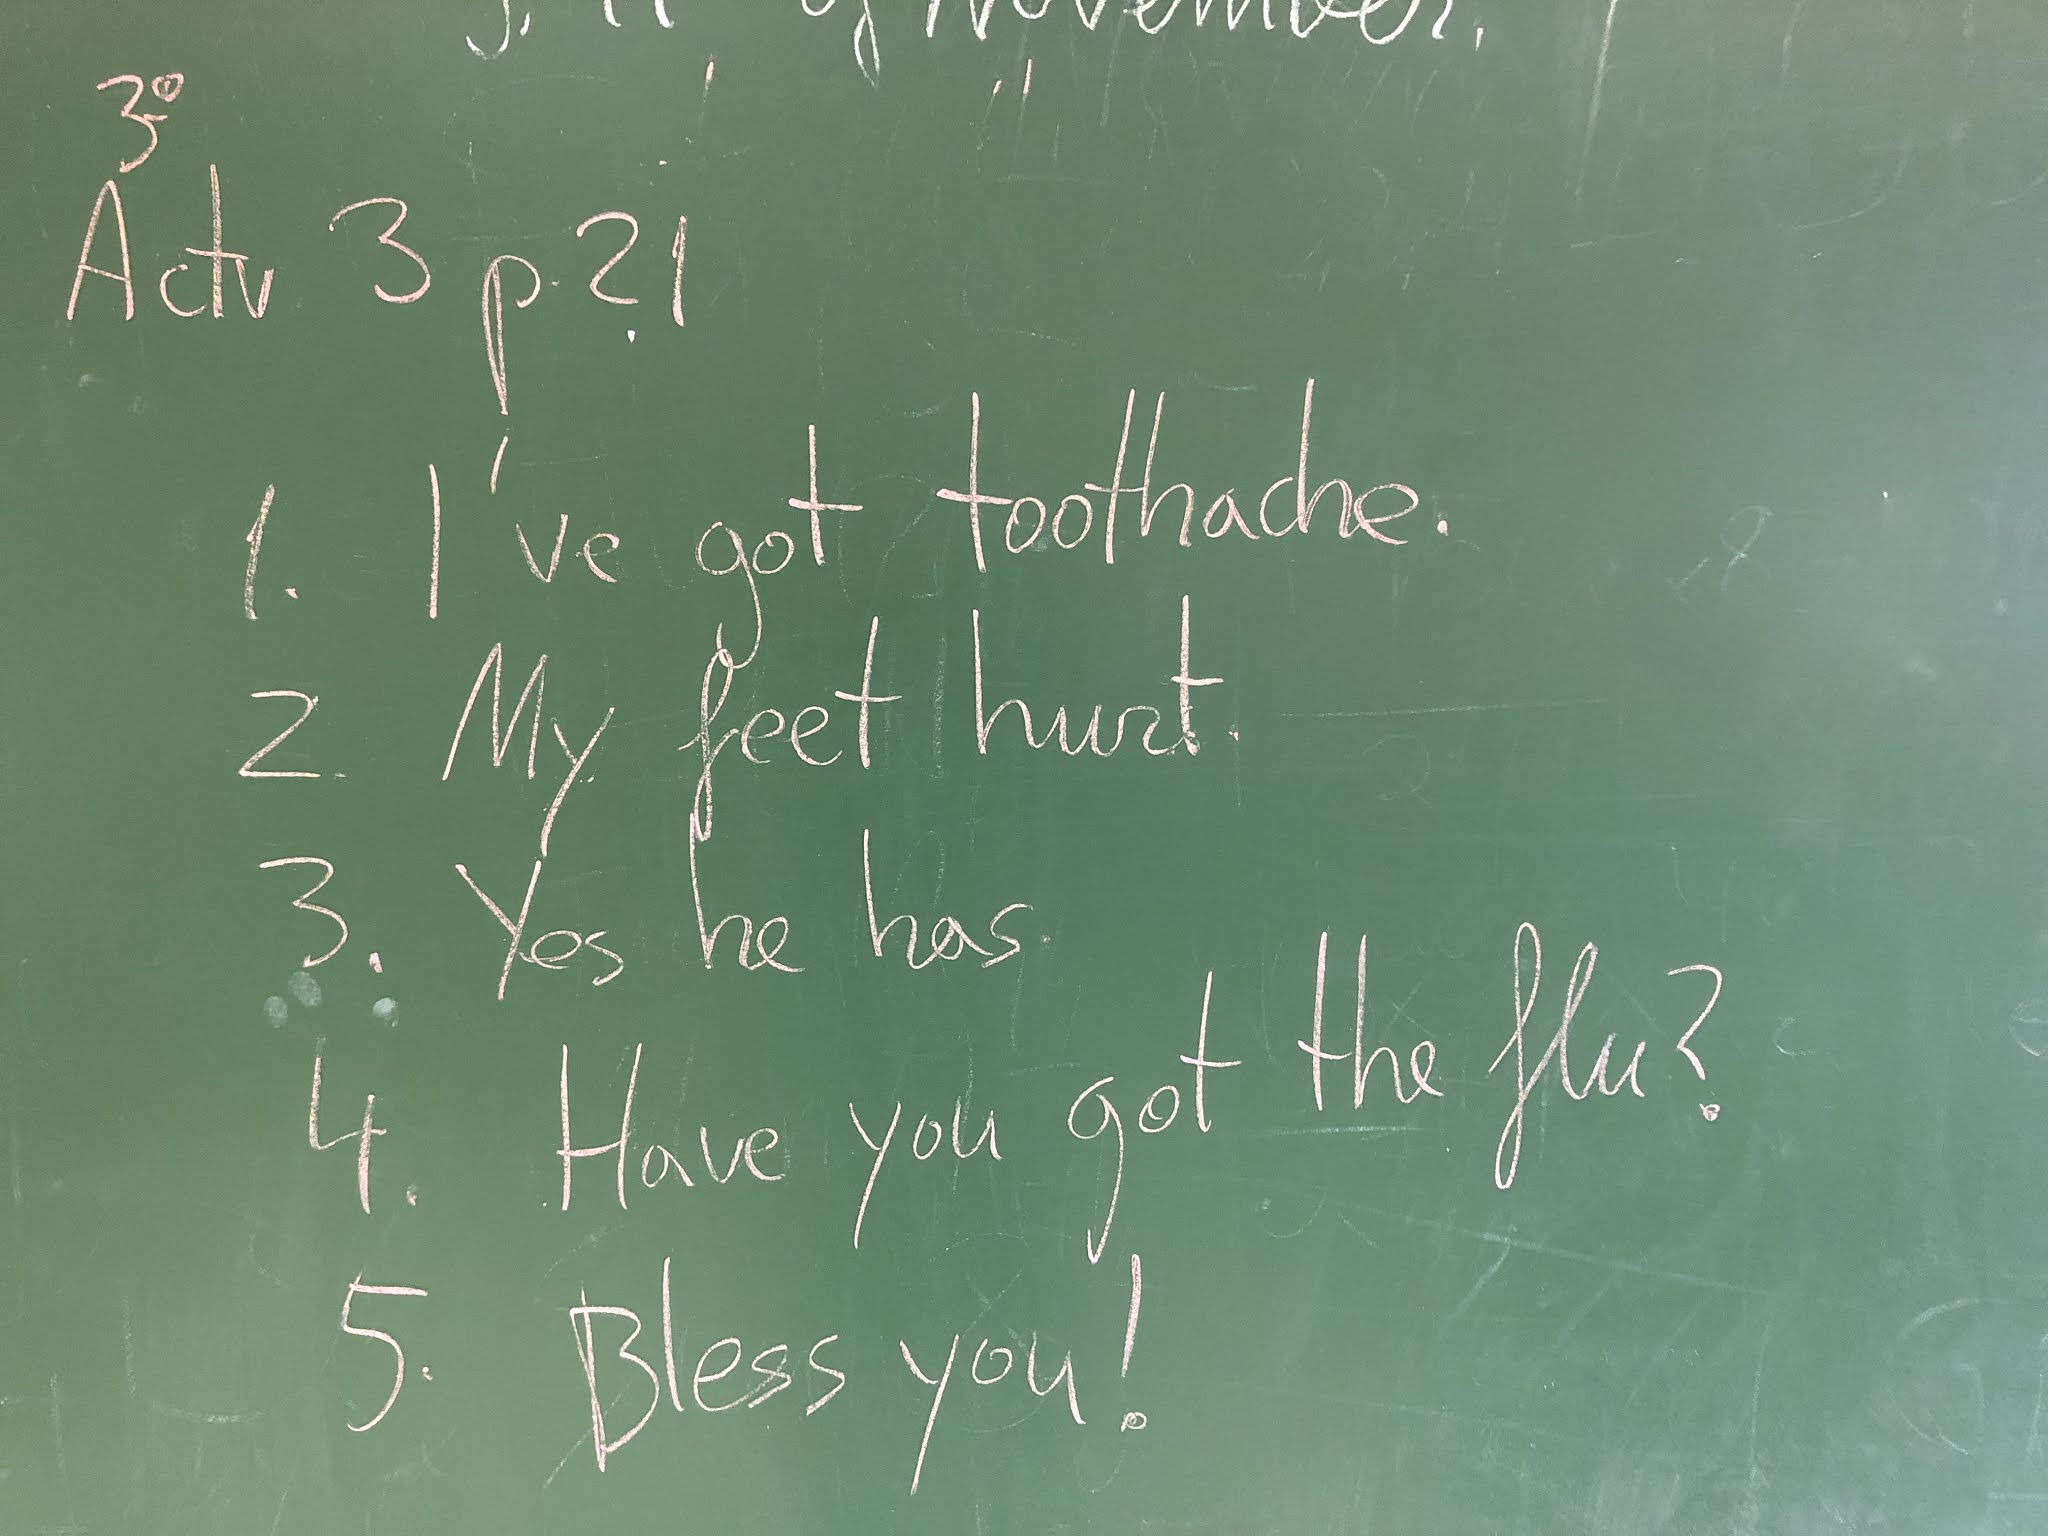 of November.
3º
Actv 3 p. 21
1. I've got toothache.
2. My feet hurt.
3. Yes he has.
4. Have you got the flu?
5. Bless you!